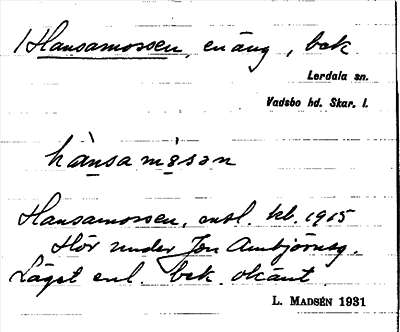 1 Hansamossen, en äng, bek.
Lerdala sn.
Vadsbo hd. Skar. l.
hànsamåsən
Hansamossen, enl. kb. 1915
Hör under Jon Ambjörnsg.
Läget enl. bek. okänt.
L. MADSÉN 1931